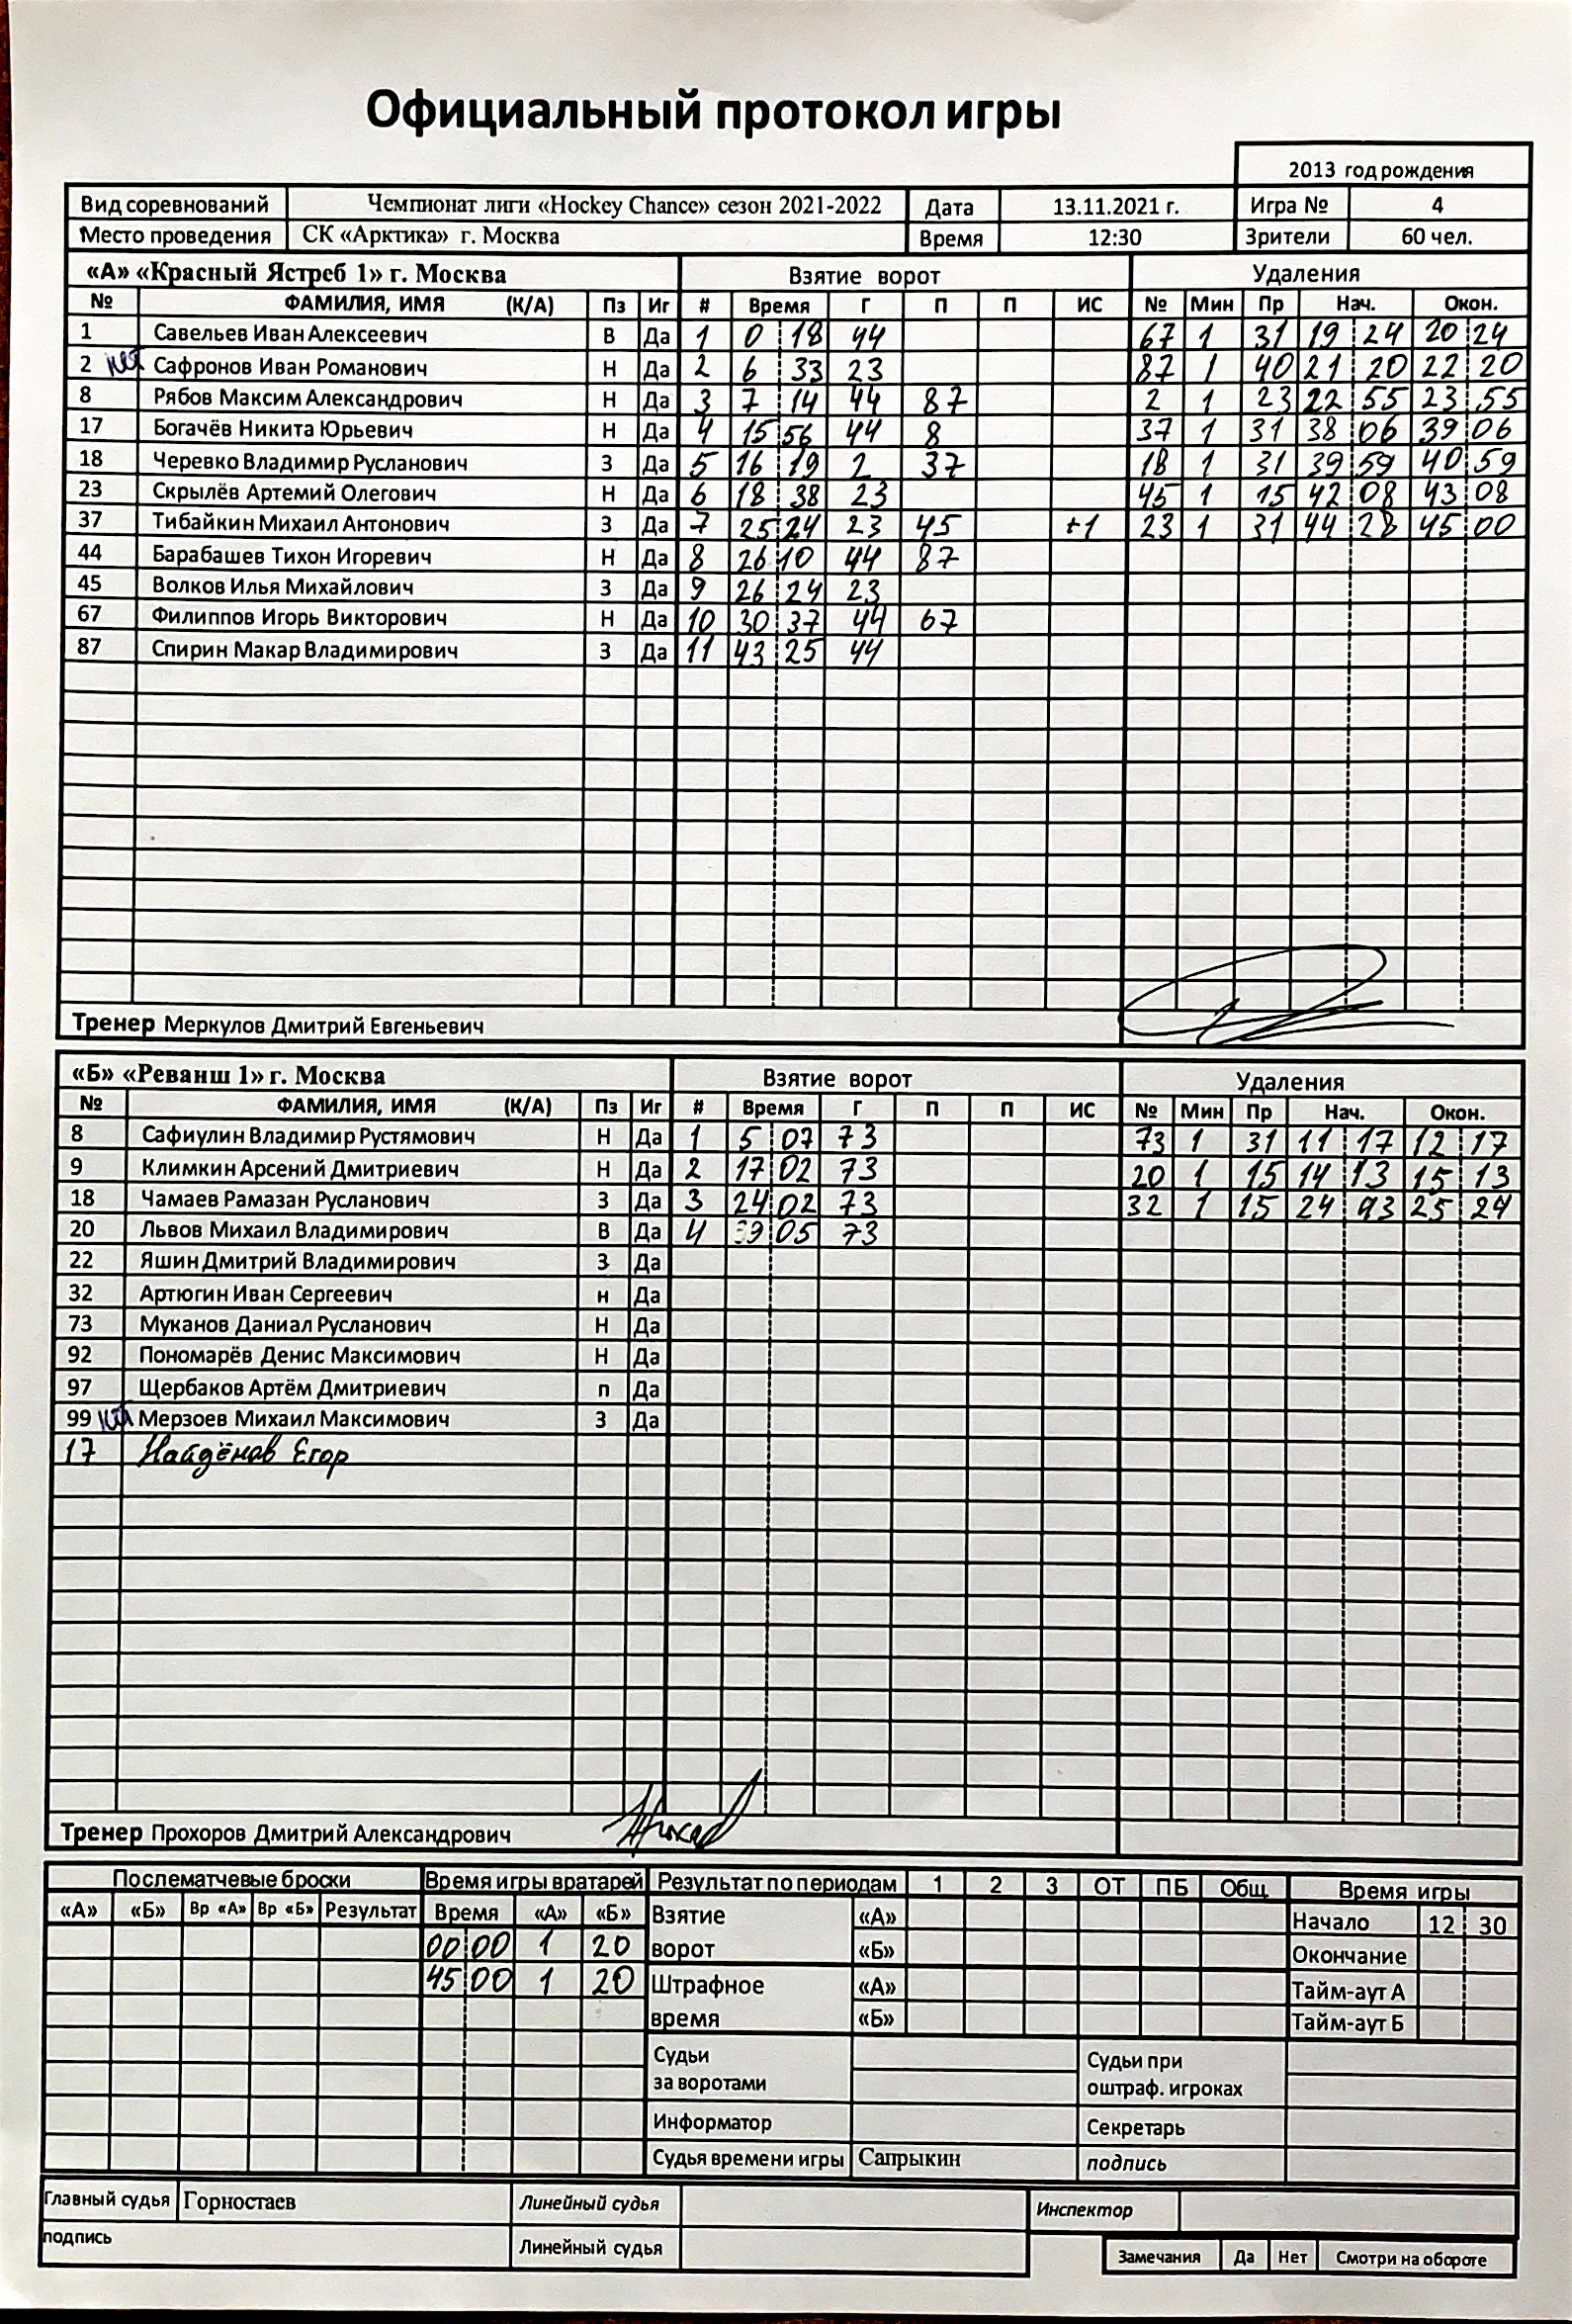 Официальный протокол игры
2013 год рождения
Вид соревнований Чемпионат лиги «Hockey Chance» сезон 2021-2022 Дата 13.11.2021 г. Игра № 4
Место проведения СК «Арктика» г. Москва Время 12:30 Зрители 60 чел.
«А» «Красный Ястреб 1» г. Москва Взятие ворот Удаления
№ ФАМИЛИЯ, ИМЯ (К/А) Пз Иг # Время Г П П ИС № Мин Пр Нач. Окон.
1 Савельев Иван Алексеевич В Да 1 0 18 44 67 1 31 19 24 20 24
2 нет Сафронов Иван Романович Н Да 2 6 33 23 87 1 40 21 20 22 20
8 Рябов Максим Александрович Н Да 3 7 14 44 87 2 1 23 22 55 23 55
17 Богачёв Никита Юрьевич Н Да 4 15 56 44 8 37 1 31 38 06 39 06
18 Черевко Владимир Русланович З Да 5 16 19 2 37 18 1 31 39 59 40 59
23 Скрылёв Артемий Олегович Н Да 6 18 38 23 45 1 15 42 08 43 08
37 Тибайкин Михаил Антонович З Да 7 25 24 23 45 +1 23 1 31 44 28 45 00
44 Барабашев Тихон Игоревич Н Да 8 26 10 44 87
45 Волков Илья Михайлович З Да 9 26 24 23
67 Филиппов Игорь Викторович Н Да 10 30 37 44 67
87 Спирин Макар Владимирович З Да 11 43 25 44
Тренер Меркулов Дмитрий Евгеньевич
«Б» «Реванш 1» г. Москва Взятие ворот Удаления
№ ФАМИЛИЯ, ИМЯ (К/А) Пз Иг # Время Г П П ИС № Мин Пр Нач. Окон.
8 Сафиулин Владимир Рустямович Н Да 1 5 07 73 73 1 31 11 17 12 17
9 Климкин Арсений Дмитриевич Н Да 2 17 02 73 20 1 15 14 13 15 13
18 Чамаев Рамазан Русланович З Да 3 24 02 73 32 1 15 24 93 25 24
20 Львов Михаил Владимирович В Да 4 39 05 73
22 Яшин Дмитрий Владимирович З Да
32 Артюгин Иван Сергеевич н Да
73 Муканов Даниал Русланович Н Да
92 Пономарёв Денис Максимович Н Да
97 Щербаков Артём Дмитриевич п Да
99 Мерзоев Михаил Максимович З Да
17 Найдёнов Егор
Тренер Прохоров Дмитрий Александрович
Послематчевые броски Время игры вратарей Результат по периодам 1 2 3 ОТ ПБ Общ. Время игры
«А» «Б» Вр «А» Вр «Б» Результат Время «А» «Б» Взятие «А» Начало 12 30
00 00 1 20 ворот «Б» Окончание
45 00 1 20 Штрафное «А» Тайм-аут А
время «Б» Тайм-аут Б
Судьи Судьи при
за воротами оштраф. игроках
Информатор Секретарь
Судья времени игры Сапрыкин подпись
Главный судья Горностаев Линейный судья Инспектор
подпись Линейный судья Замечания Да Нет Смотри на обороте